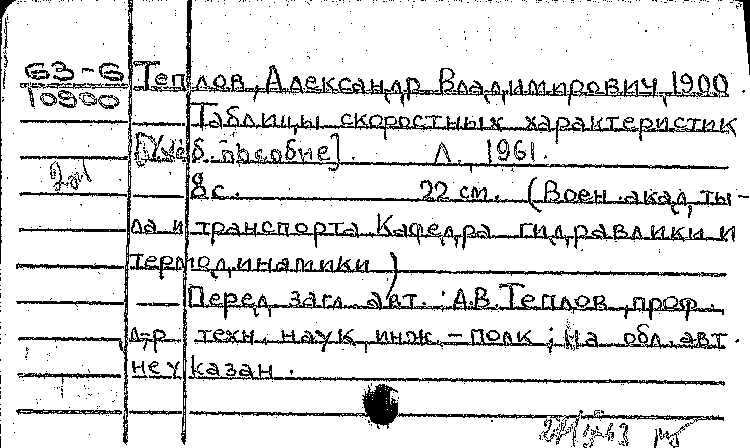 63-6 Теплов, Александр Владимирович, 1900.
10900
Таблицы скоростных характеристик
[Учеб. пособие]. Л. 1961.
8 с. 22 см. (Воен. акад. ты-
ла и транспорта Кафедра гидравлики и
термодинамики)
— Перед загл. авт.: А.В. Теплов, проф.
д-р техн. наук, инж.-полк; на обл. авт.
не указан.